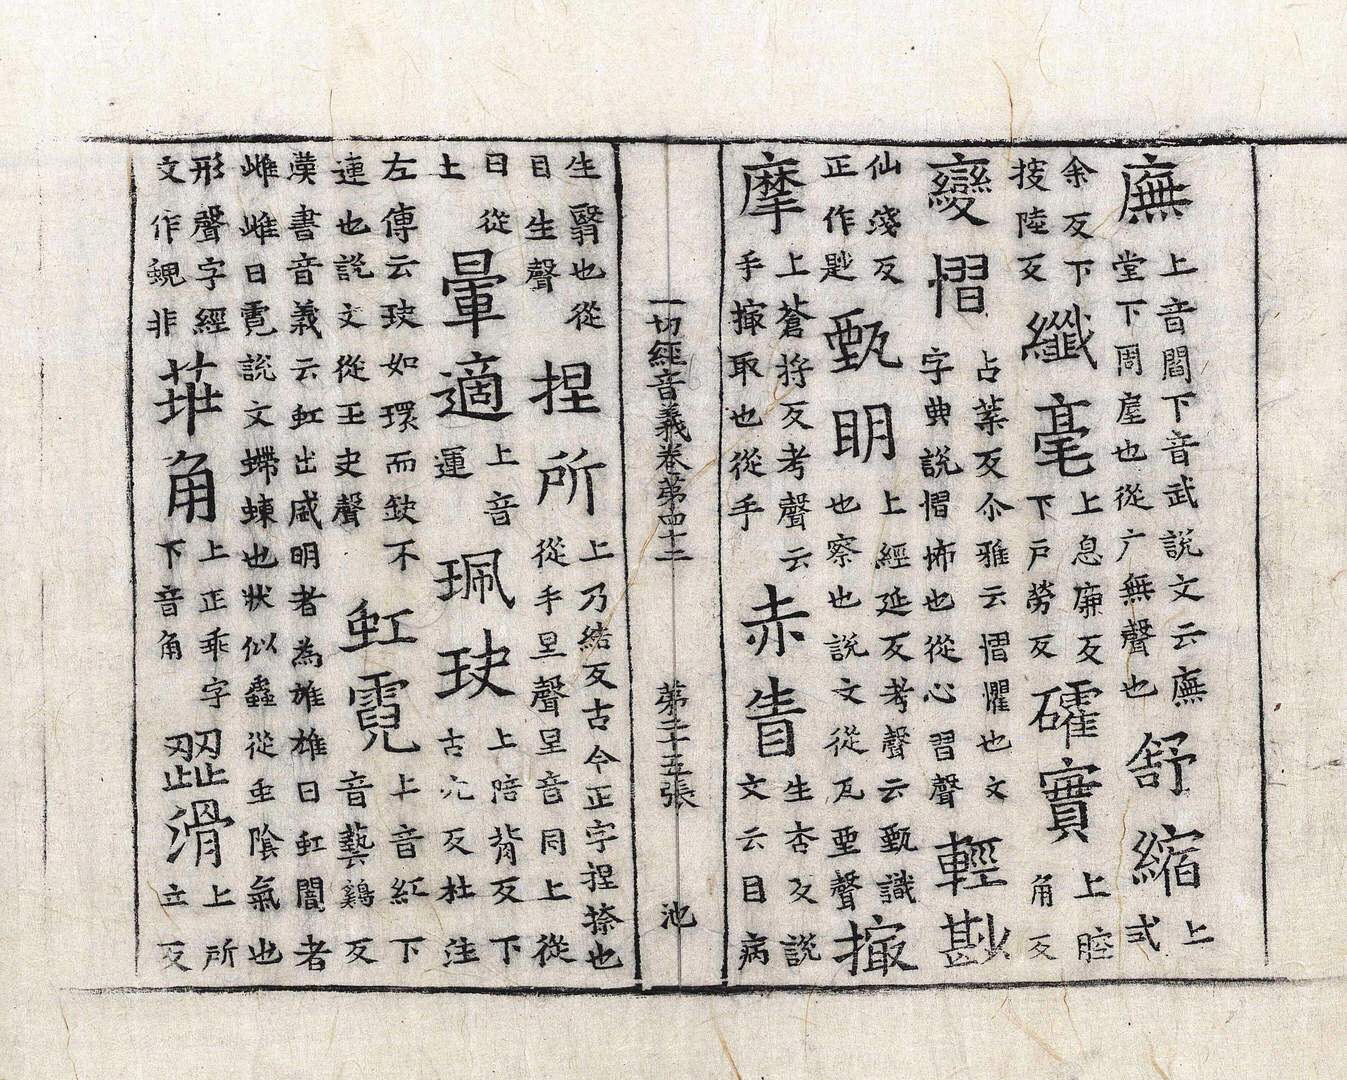 廡上音閻下音武說文云廡堂下周屋也從广無聲也舒縮上式
余反下陸反纖毫上息廉反下戶勞反礭實上腔角反
變慴占葉反尒雅云慴懼也文字典說慴怖也從心習聲輕尠
仙淺反正作尟甄明上經延反考聲云甄識也察也說文從瓦垔聲撮
摩上蒼捋反考聲云手撮取也從手赤眚生杏反說文云目病
一切經音義卷第四十二 第三十五張 池
生翳也從目生聲捏所上乃結反古今正字捏捺也從手呈聲呈音同上從
日從土暈適上音運珮玦上陪背反下古穴反杜注
左傳云玦如環而缺不連也說文從王夬聲虹霓上音紅下音藝鷄反
漢書音義云虹出盛明者為雄雄曰虹闇者雌雌曰霓說文螮蝀也狀似蟲從虫陰氣也
形聲字經文作蜺非角上正乖字下音角歰滑上所立反